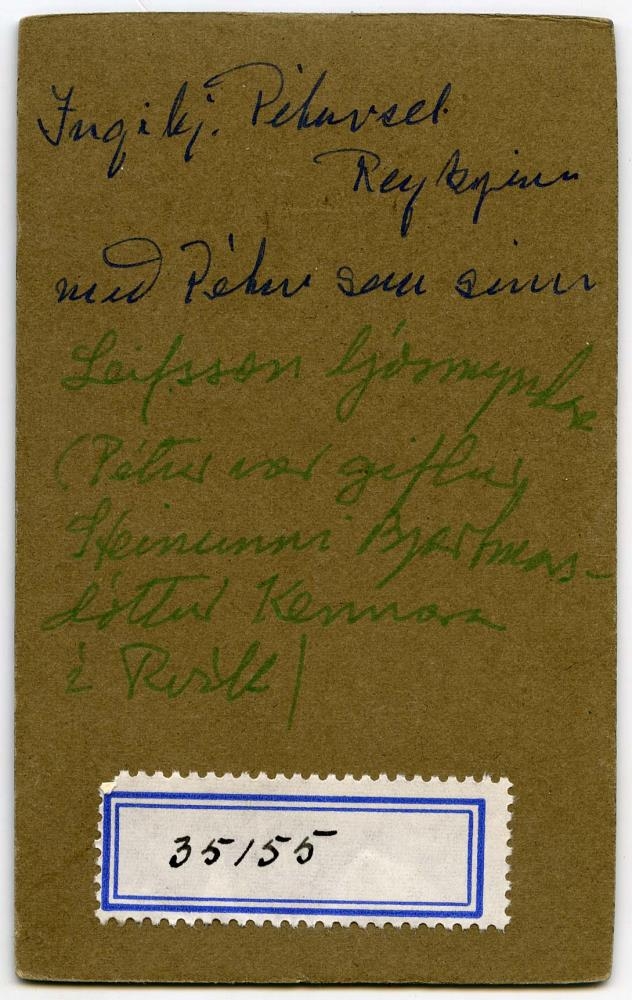 Ingibj. Pétursd.
Reykjum
með Pétur son sinn
Leifsson ljósmyndar
(Pétur var giftur
Steinunni Bjartmars-
dóttur Kennara
í Rvík)
35155